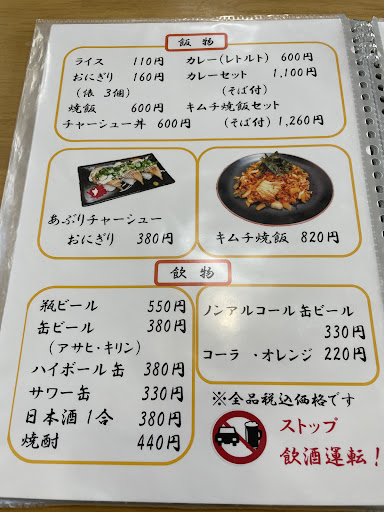 飯物
ライス 110円
おにぎり 160円
(俵 3個)
焼飯 600円
チャーシュー丼 600円
カレー(レトルト) 600円
カレーセット 1,100円
(そば付)
キムチ焼飯セット
(そば付) 1,260円
あぶりチャーシュー
おにぎり 380円
キムチ焼飯 820円
飲物
瓶ビール 550円
缶ビール 380円
(アサヒ・キリン)
ハイボール缶 380円
サワー缶 330円
日本酒1合 380円
焼酎 440円
ノンアルコール缶ビール
330円
コーラ ・オレンジ 220円
※全品税込価格です
ストップ
飲酒運転!